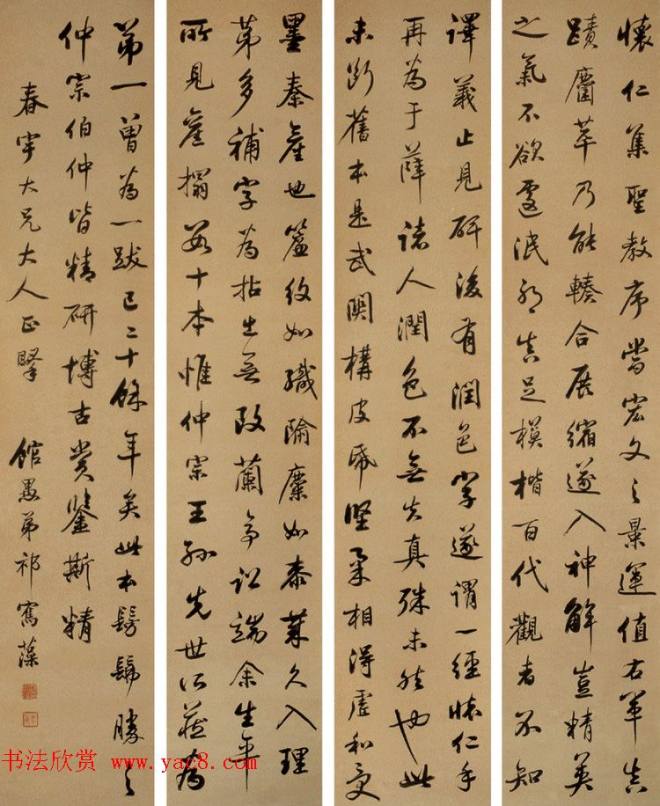 懷仁集聖教序當宏文之景運值右軍真
蹟麕萃乃能輳合展縮遂入神解豈精英
之氣不欲遽泯邪真足模楷百代觀者不知
譯義止見研後有潤色字遂謂一經懷仁手
再為于薛諸人潤色不無失真殊未然也此
未斷舊本是武關構皮紙堅柔相得虛和受
墨秦產也簾紋如織隃麋如桼業久入理
第多補字為拈出無改蘭亭訟端余生平
所見舊搨數十本惟仲宗王孫先世所藏為
第一曾為一跋已二十餘年矣此本髣髴勝之
仲宗伯仲皆精研博古賞鑒斯精
春宇大兄大人正 館愚弟祁寯藻
书法欣赏 www.yac8.com